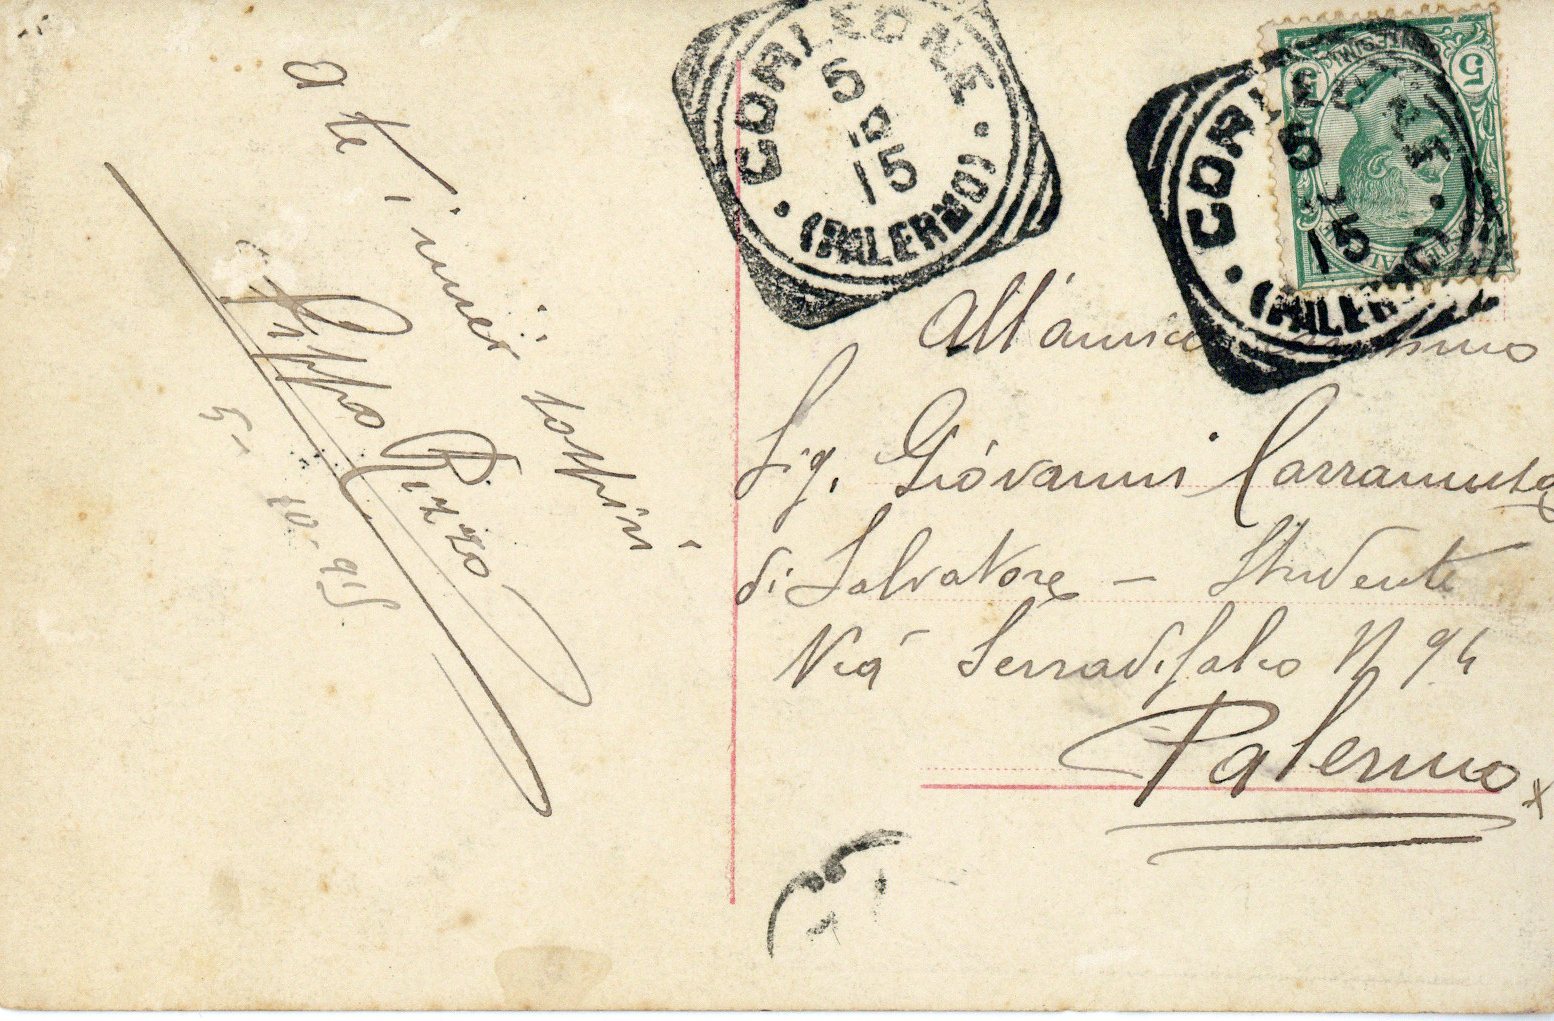 a te i miei sospiri
Pippo Rizzo
5-10-915
CORLEONE
5
15
(PALERMO)
CORLEONE
5
15
(PALERMO)
5
CENTESIMI
5
All'amico carissimo
Sig. Giovanni Carramusa
di Salvatore - Studente
Via Serradifalco N 94
Palermo